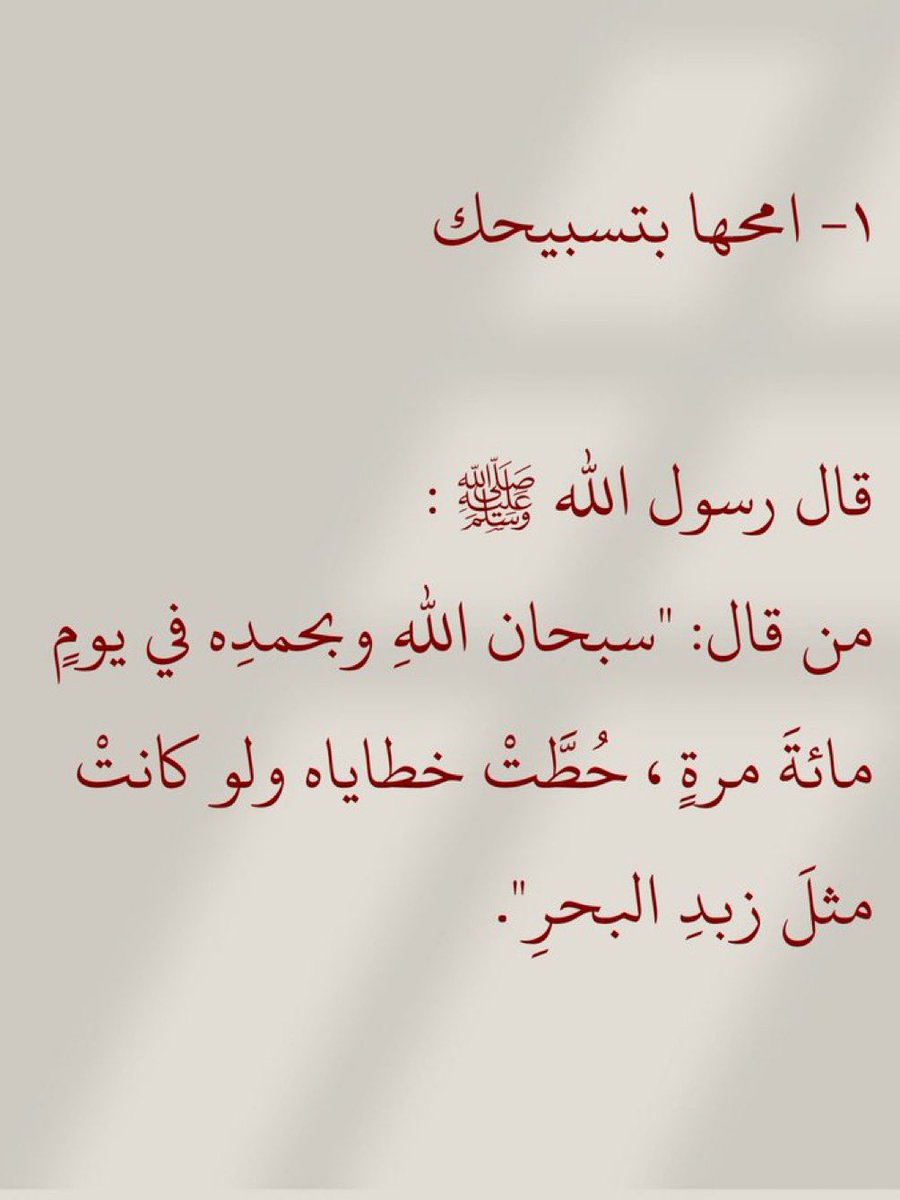 ١- امحها بتسبيحك
قال رسول الله ﷺ :
من قال: "سبحان اللهِ وبحمدِه في يومٍ
مائةَ مرةٍ ، حُطَّتْ خطاياه ولو كانتْ
مثلَ زبدِ البحرِ".